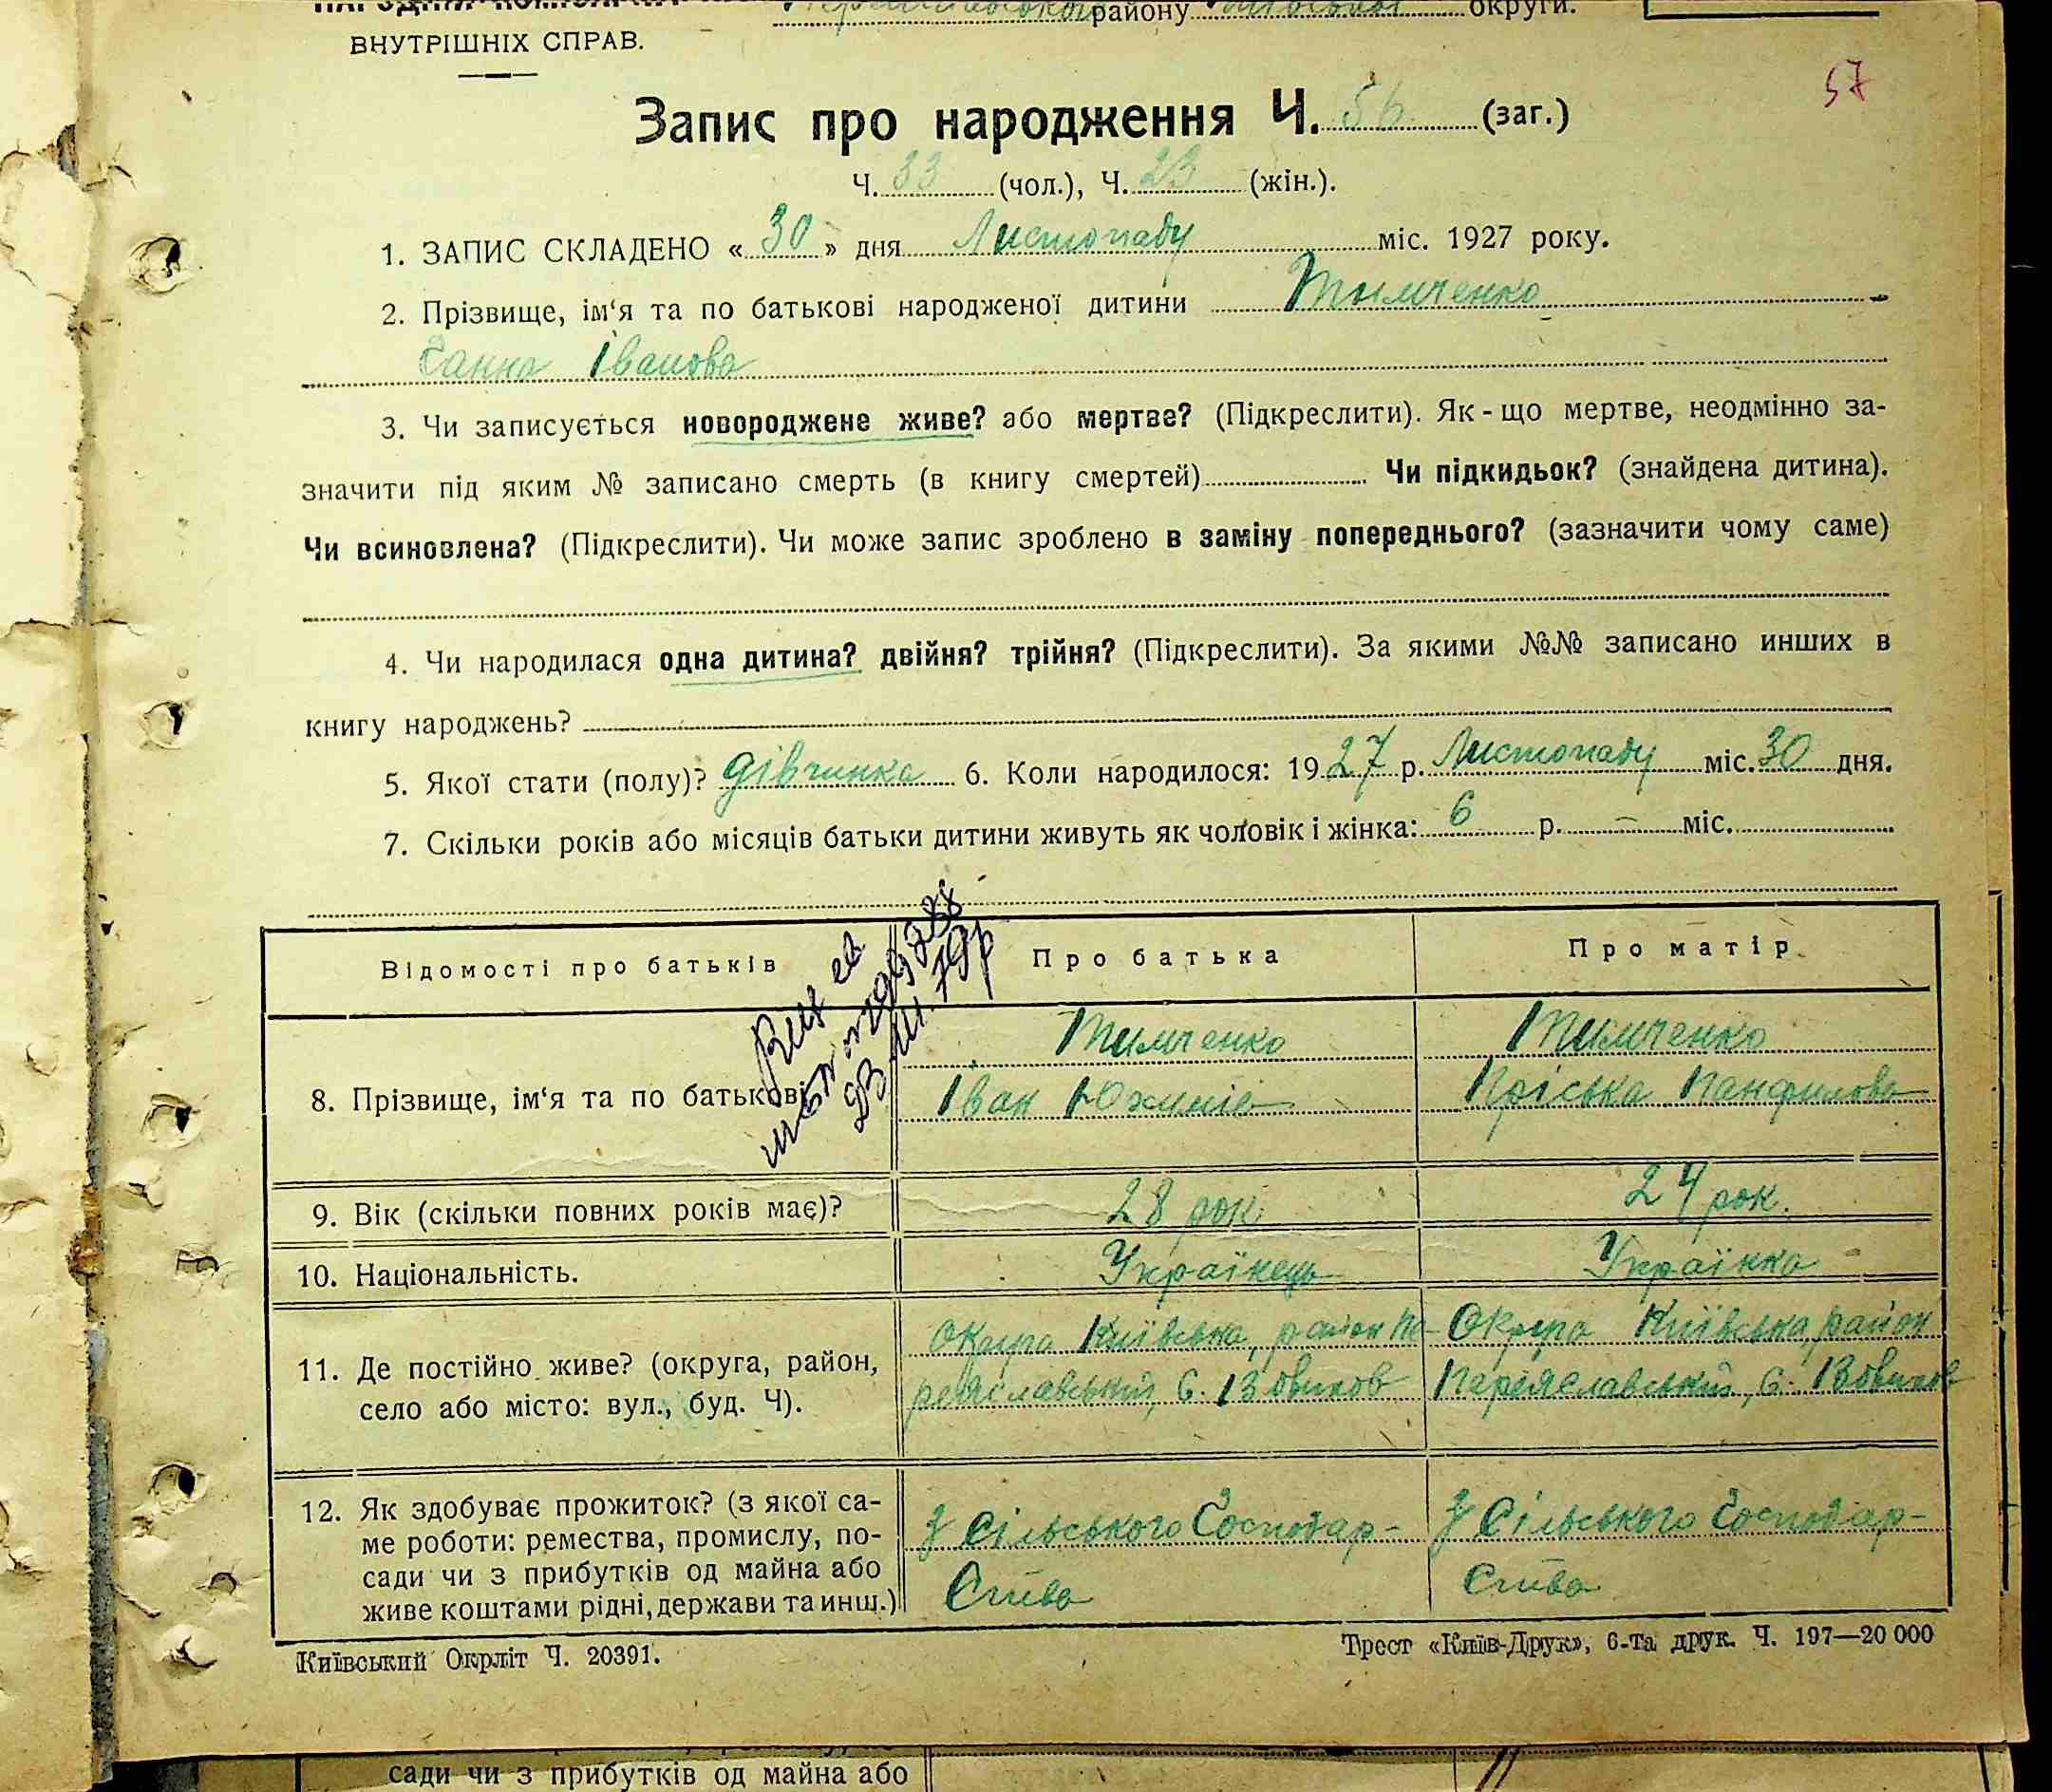 району округи.
ВНУТРІШНІХ СПРАВ.
57
Запис про народження Ч. 56 (заг.)
Ч. 33 (чол.), Ч. 23 (жін.).
1. ЗАПИС СКЛАДЕНО « 30 » дня Листопаду міс. 1927 року.
2. Прізвище, ім‘я та по батькові народженої дитини Тимченко
Ганна Іванова
3. Чи записується новороджене живе? або мертве? (Підкреслити). Як-що мертве, неодмінно за-
значити під яким № записано смерть (в книгу смертей) Чи підкидьок? (знайдена дитина).
Чи всиновлена? (Підкреслити). Чи може запис зроблено в заміну попереднього? (зазначити чому саме)
4. Чи народилася одна дитина? двійня? трійня? (Підкреслити). За якими №№ записано инших в
книгу народжень?
5. Якої стати (полу)? дівчинка 6. Коли народилося: 19 27 р. Листопаду міс. 30 дня.
7. Скільки років або місяців батьки дитини живуть як чоловік і жінка: 6 р. – міс.
Відомості про батьків Про батька Про матір.
8. Прізвище, ім‘я та по батькові
Тимченко
Іван Юхимів
Тимченко
Пріська Панфилова
9. Вік (скільки повних років має)? 28 рок. 24 рок.
10. Національність. Українець Українка
11. Де постійно живе? (округа, район,
село або місто: вул., буд. Ч).
Округа Київська, район Пе-
реяславський, с.
Округа Київська, район
Переяславський, с.
12. Як здобуває прожиток? (з якої са-
ме роботи: ремества, промислу, по-
сади чи з прибутків од майна або
живе коштами рідні, держави та инш.)
З Сільського Господар-
Ства
З Сільського Господар-
Ства
Київський Окрліт Ч. 20391.
Трест «Київ-Друк», 6-та друк. Ч. 197—20 000
сади чи з прибутків од майна або